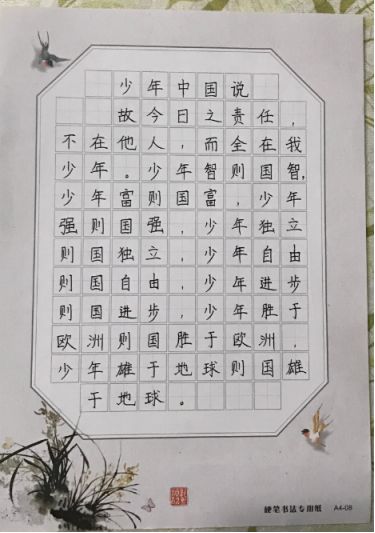 少年中国说
故今日之责任，
不在他人，而全在我
少年。少年智则国智，
少年富则国富，少年
强则国强，少年独立
则国独立，少年自由
则国自由，少年进步
则国进步，少年胜于
欧洲则国胜于欧洲，
少年雄于地球则国雄
于地球。
硬笔书法专用纸 A4-08